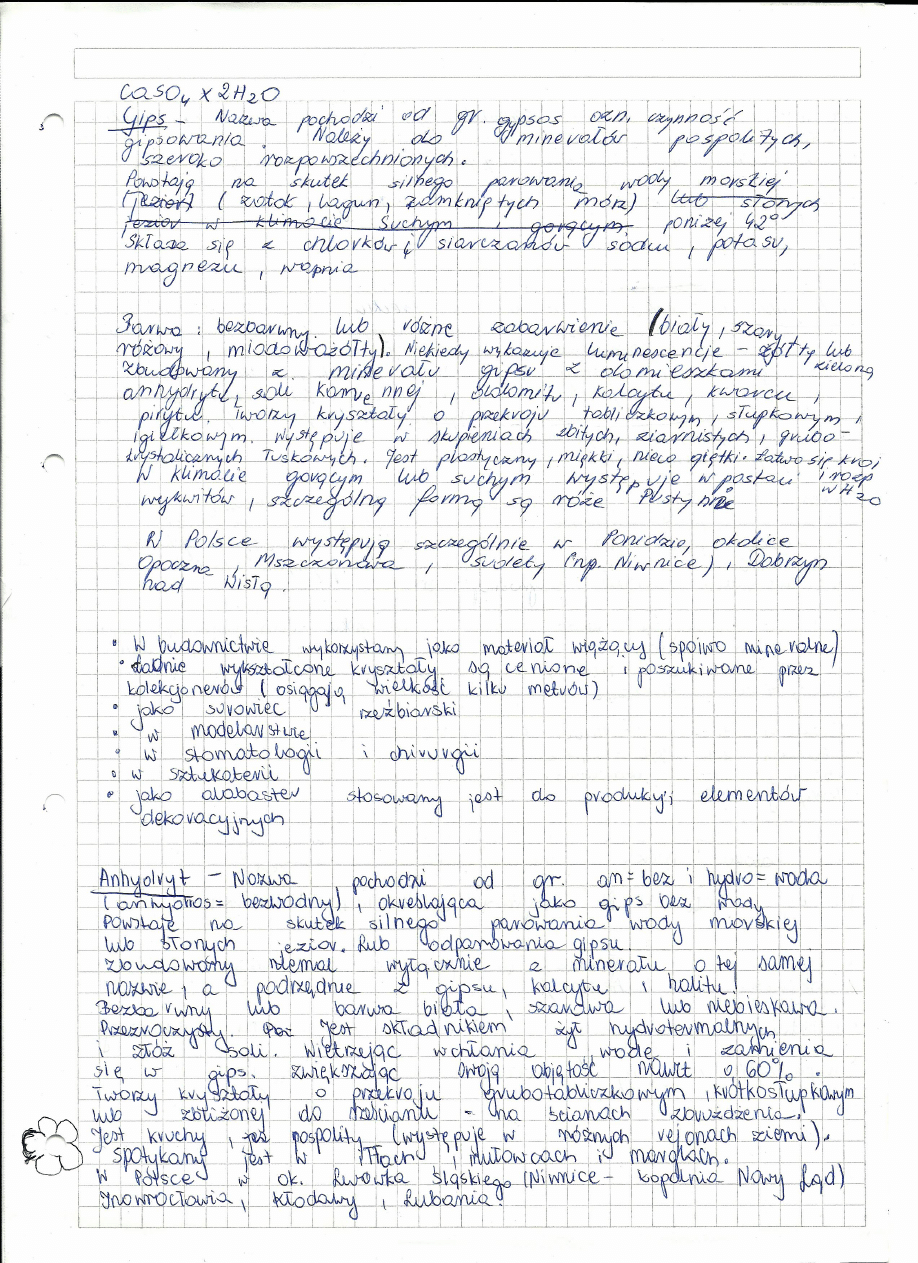 CaSO4 x 2H2O
Gips – Nazwa pochodzi od gr. gypsos ozn. czynność
gipsowania. Należy do minerałów pospolitych,
szeroko rozpowszechnionych.
Powstają na skutek silnego parowania wody morskiej
(jezior) (zatok, lagun, zamkniętych mórz) lub słonych
jezior w klimacie suchym i gorącym poniżej 42°
Składa się z chlorków i siarczanów sodu, potasu,
magnezu, wapnia
Barwa: bezbarwny lub różne zabarwienie (biały, szary
różowy, miodowożółty). Niekiedy wykazuje luminescencje – żółty lub
zieloną
zbudowany z minerału gipsu z domieszkami
anhydrytu, soli kamiennej, dolomitu, kalcytu, kwarcu,
pirytu. Tworzy kryształy o przekroju tabliczkowym, słupkowym,
igiełkowym. Występuje w skupieniach zbitych, ziarnistych, grubo-
krystalicznych łuskowych. Jest plastyczny, miękki, nieco giętki. Łatwo się kroi
i rozp
W klimacie gorącym lub suchym występuje w postaci
w H2O
wykwitów, szczególną formą są róże Pustynne
W Polsce występują szczególnie w Ponidzio, okolice
Opoczna, Mszczonowa, sudety (np. Niwnice), Dobrzyn
nad Wisłą.
• W budownictwie wykorzystany jako materiał wiążący (spoiwo mineralne)
• Ładnie wykształcone kryształy są cenione i poszukiwane przez
kolekcjonerów (osiągają wielkość kilku metrów)
• jako surowiec rzeźbiarski
• w modelarstwie
• w stomatologii i chirurgii
• w sztukaterii
• jako alabaster stosowany jest do produkcji elementów
dekoracyjnych
Anhydryt – Nazwa pochodzi od gr. an = bez i hydro = woda
(anhydros = bezwodny), określająca jako gips bez wody
Powstaje na skutek silnego parowania wody morskiej
lub słonych jezior. Lub odparowania gipsu.
zbudowany niemal wyłącznie z minerału o tej samej
nazwie, a podrzędnie z gipsu, kalcytu i halitu.
Bezbarwny lub barwa biała, szarawa lub niebieskawa.
Przezroczysty. Jest składnikiem żył hydrotermalnych
i złóż soli. Wietrzejąc wchłania wodę i zamienia
się w gips. zwiększając swoją objętość nawet o 60%.
Tworzy kryształy o przekroju grubotabliczkowym, krótkosłupkowym
lub zbliżonej do sześcianu – na ścianach zbrużdżenia.
Jest kruchy, jest pospolity (występuje w różnych rejonach ziemi).
Spotykany jest w iłach, mułowcach i marglach.
W Polsce w ok. Lwówka śląskiego (Niwnice – kopalnia Nowy Ląd)
Inowrocławia, Kłodawy, Lubania.